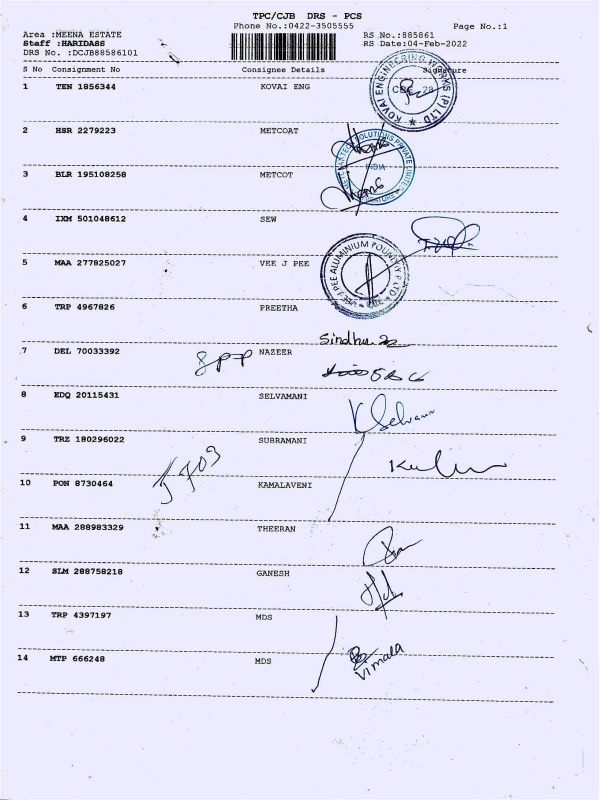 TPC/CJB DRS - PCS
Phone No.:0422-3505555 Page No.:1
Area :MEENA ESTATE RS No.:885861
Staff :HARIDASS RS Date:04-Feb-2022
DRS No. :DCJB88586101
S No Consignment No Consignee Details Signature
1 TEN 1856344 KOVAI ENG
KOVAI ENGINEERING WORKS (P) LTD
2 HSR 2279223 METCOAT
3 BLR 195108258 METCOT
INDIA
4 IXM 501048612 SEW
5 MAA 277825027 VEE J PEE
6 TRP 4967826 PREETHA
Sindhu
7 DEL 70033392 NAZEER
8 EDQ 20115431 SELVAMANI
K Selvam
9 TRZ 180296022 SUBRAMANI
10 PON 8730464 KAMALAVENI
11 MAA 288983329 THEERAN
12 SLM 288758218 GANESH
13 TRP 4397197 MDS
14 MTP 666248 MDS
Vimala